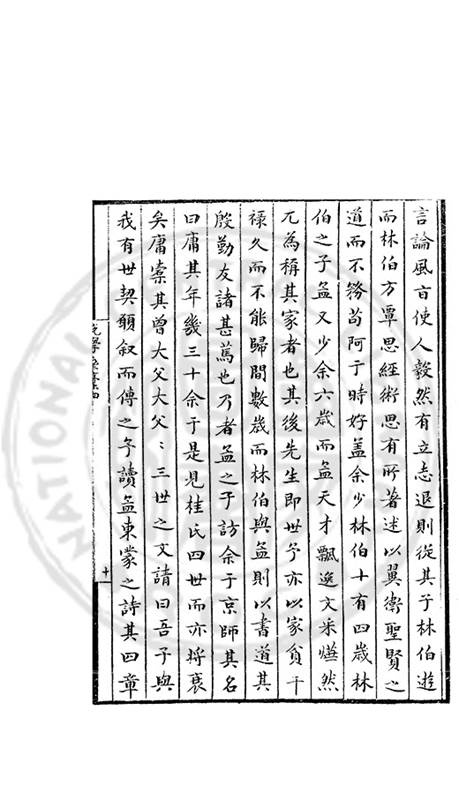 言論風旨使人毅然有立志退則從其子林伯遊
而林伯方覃思經術思有所著述以翼衛聖賢之
道而不務苟阿于時好盖余少林伯十有四歲林
伯之子孟又少余六歲而孟天才飄逸文采爗然
兀為稱其家者也其後先生即世予亦以家貧干
祿久而不能歸閒數歲而林伯與孟則以書道其
殷勤友諸甚篤也乃者孟之子訪余于京師其名
曰庸其年幾三十余于是見桂氏四世而亦將衰
矣庸索其曾大父大父〻三世之文請曰吾子與
我有世契願叙而傳之予讀孟東蒙之詩其四章
十
NATIONA